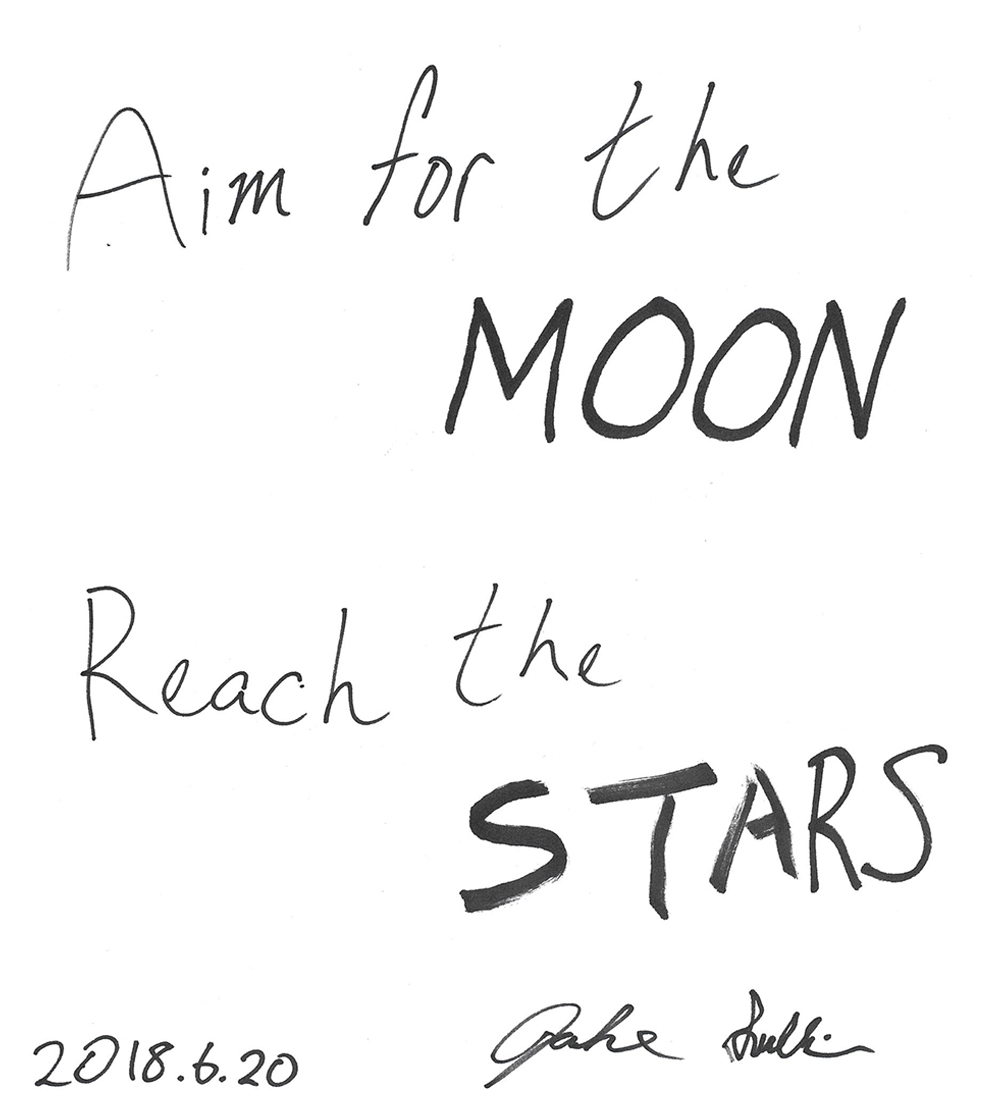 Aim for the
MOON
Reach the
STARS
2018.6.20 Jake